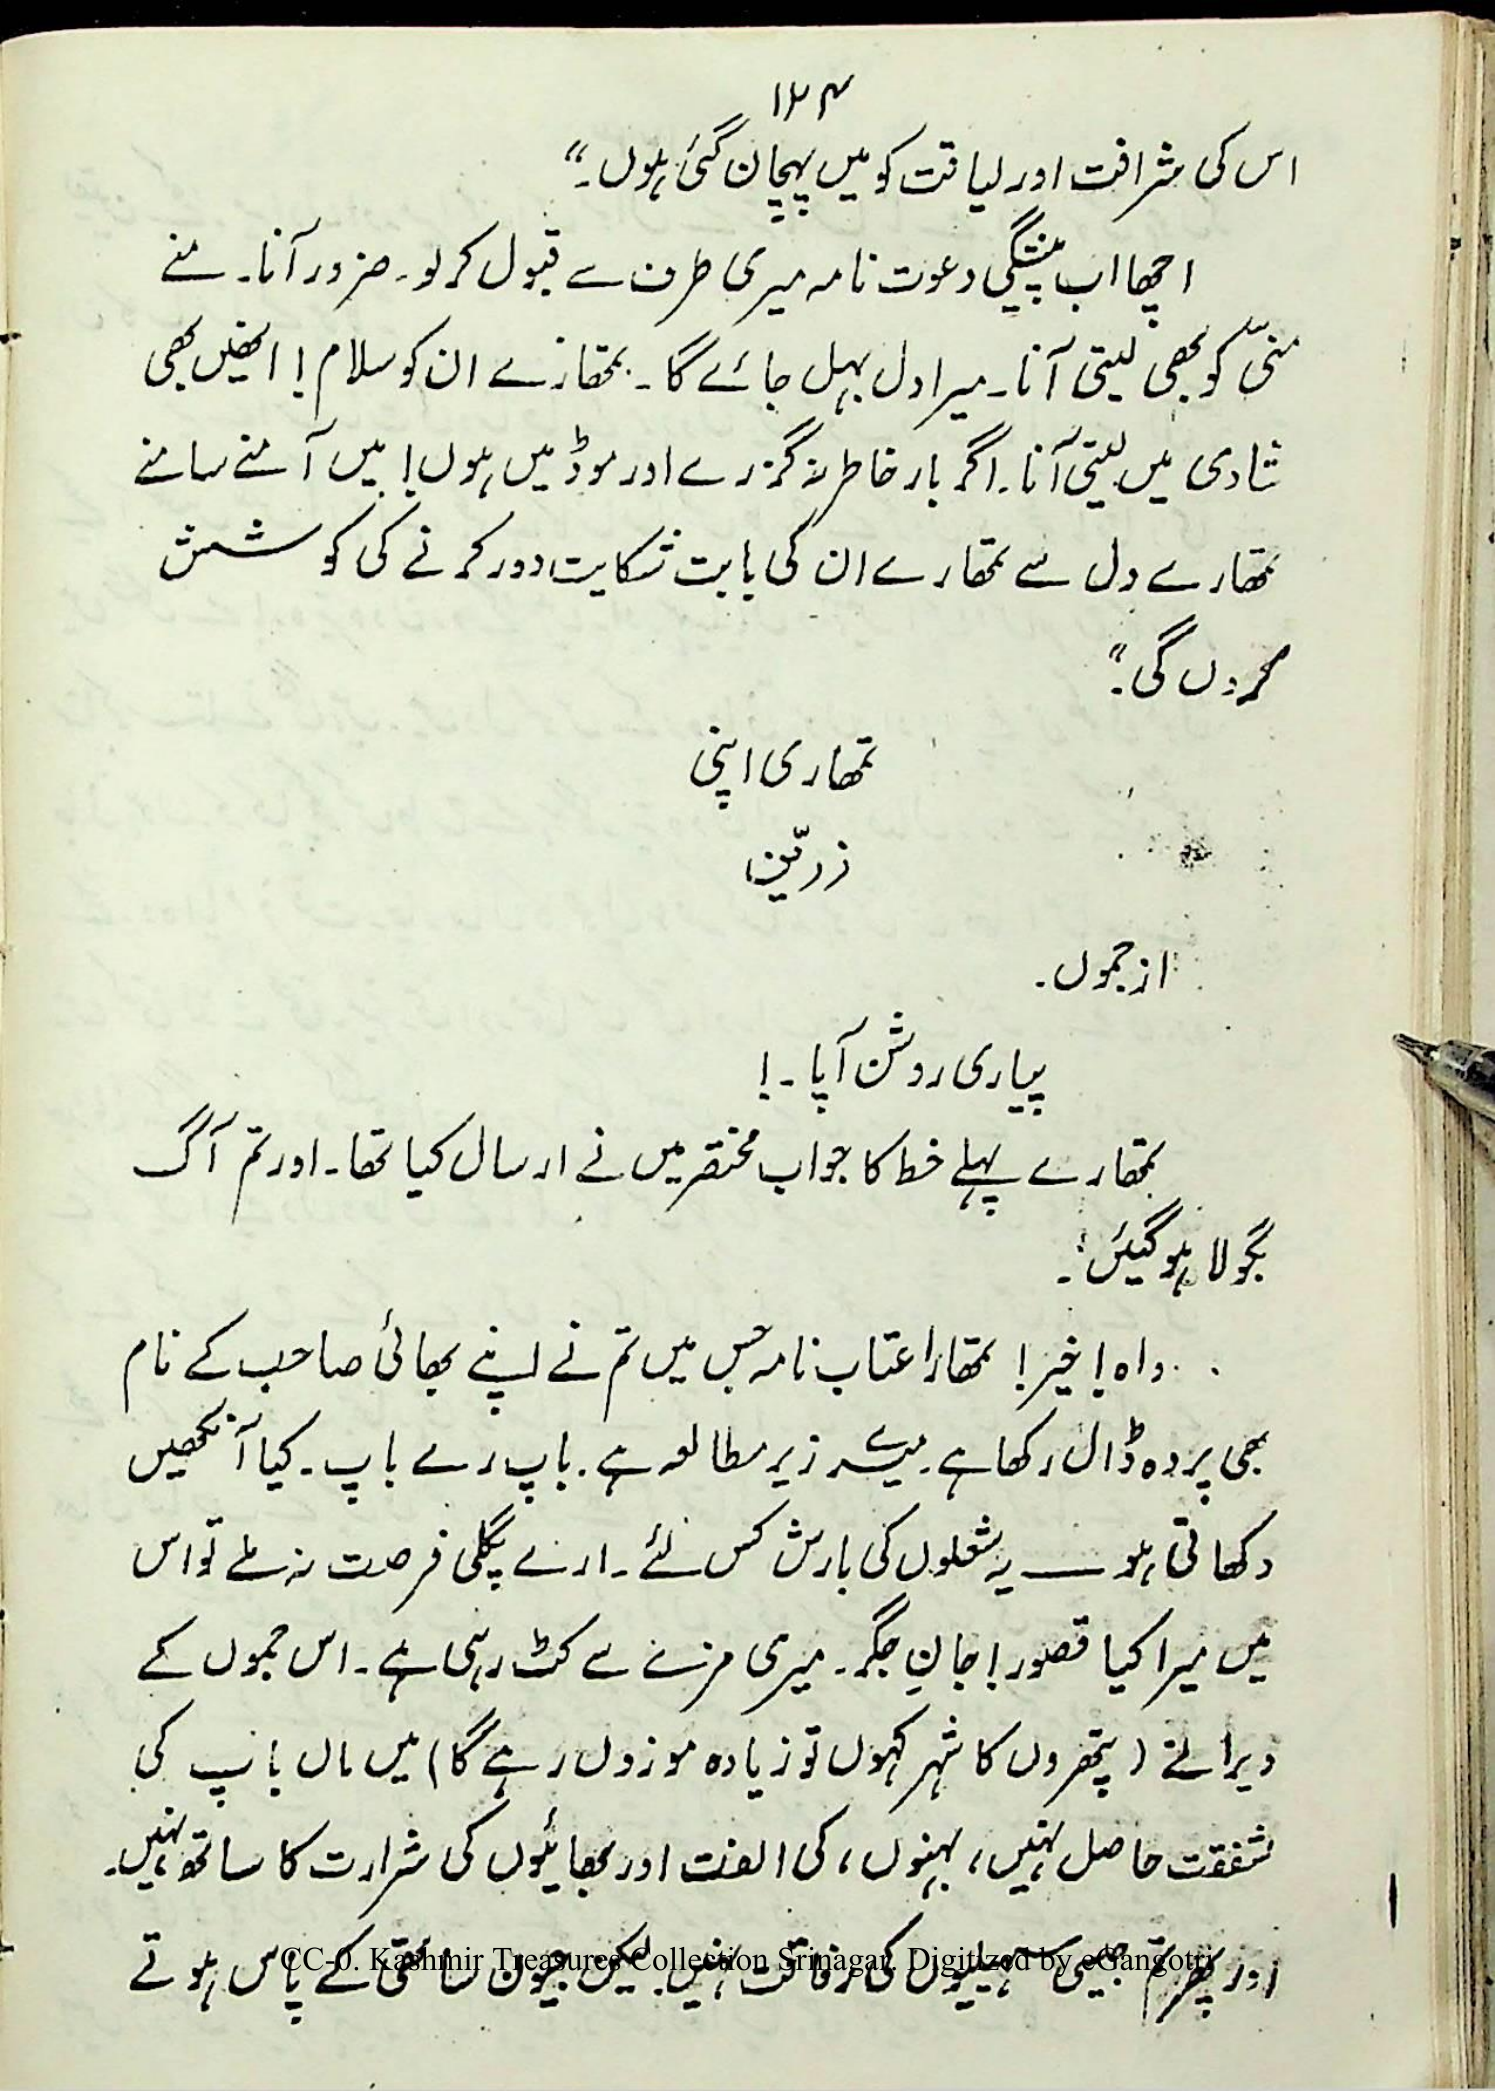 ۱۲۴
اس کی شرافت اور لیاقت کو میں پہچان گئی ہوں۔“
اچھا اب پیشگی دعوت نامہ میری طرف سے قبول کر لو۔ ضرور آنا۔ منے
منّی کو بھی لیتی آنا۔ میرا دل بہل جائے گا۔ تمھارے ان کو سلام! انھیں بھی
شادی میں لیتی آنا۔ اگر بار خاطر نہ گزرے اور موڈ میں ہوں! میں آمنے سامنے
تمھارے دل سے تمھارے ان کی بابت شکایت دور کرنے کی کوشش
کروں گی۔“
تمھاری اپنی
زرّین
از جموں۔
پیاری روشن آپا۔!
تمھارے پہلے خط کا جواب مختصر میں نے ارسال کیا تھا۔ اور تم آگ
بگولا ہو گئیں۔
واہ! خیر! تمھارا عتاب نامہ جس میں تم نے اپنے بھائی صاحب کے نام
بھی پردہ ڈال رکھا ہے۔ میرے زیر مطالعہ ہے۔ باپ رے باپ۔ کیا آنکھیں
دکھاتی ہو ــــ یہ شعلوں کی بارش کس لئے۔ ارے پگلی فرصت نہ ملے تو اس
میں میرا کیا قصور! جانِ جگر۔ میری مزے سے کٹ رہی ہے۔ اس جموں کے
ویرانے (پتھروں کا شہر کہوں تو زیادہ موزوں رہے گا) میں ماں باپ کی
شفقت حاصل نہیں، بہنوں، کی الفت اور بھائیوں کی شرارت کا ساتھ نہیں۔
اور پھر تم جیسی سہیلیوں کی رفاقت نہیں۔ لیکن جیون ساتھی کے پاس ہوتے
CC-0. Kashmir Treasures Collection Srinagar. Digitized by eGangotri